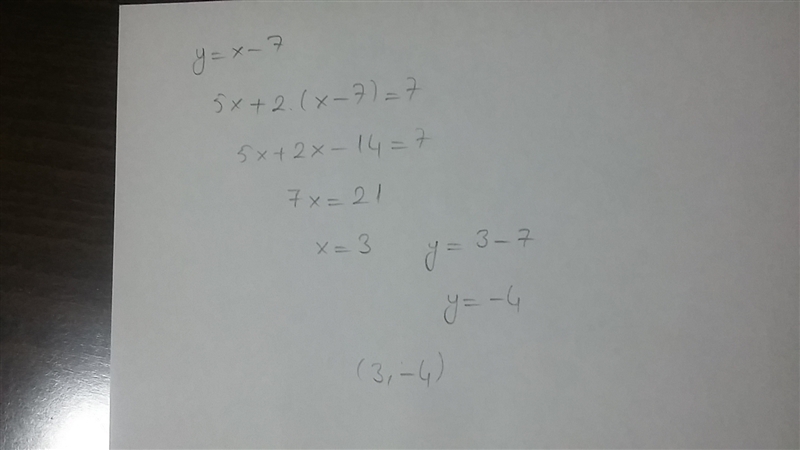 y=x-7
5x+2.(x-7)=7
5x+2x-14=7
7x=21
x=3 y=3-7
y=-4
(3,-4)